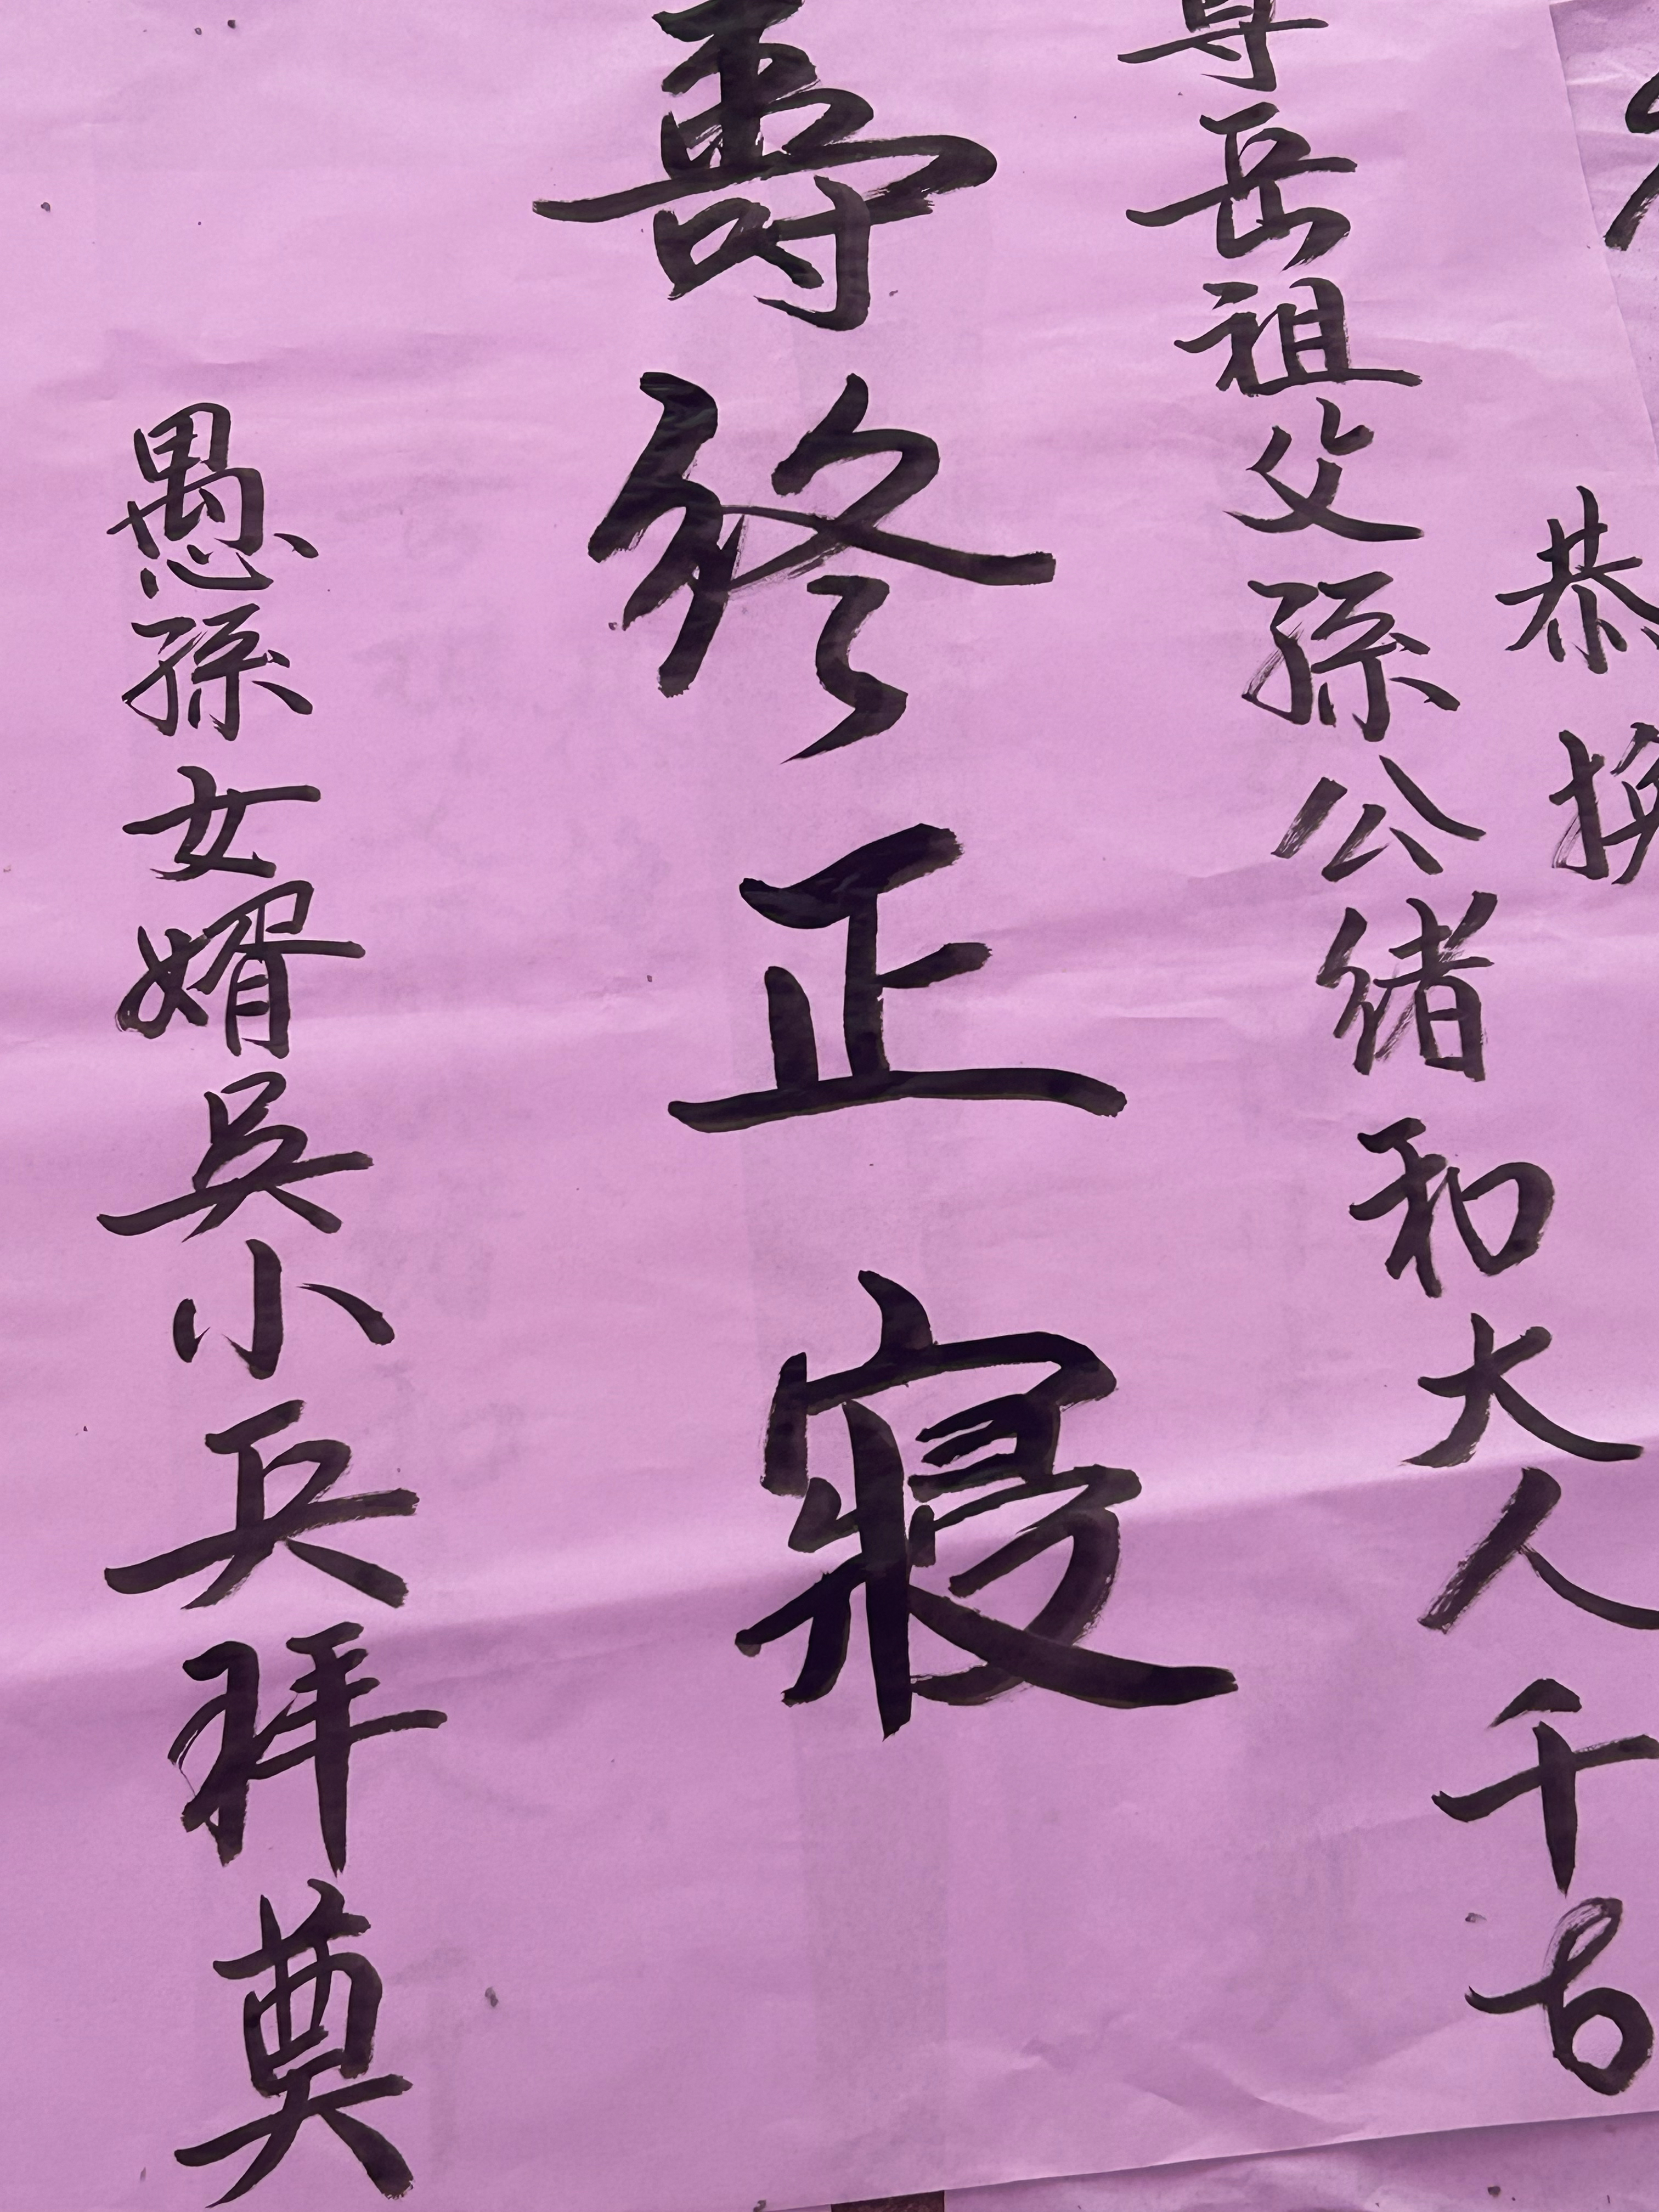 恭
尊岳祖父孫公緒和大人千古
壽終正寢
愚孫女婿吳小兵拜奠